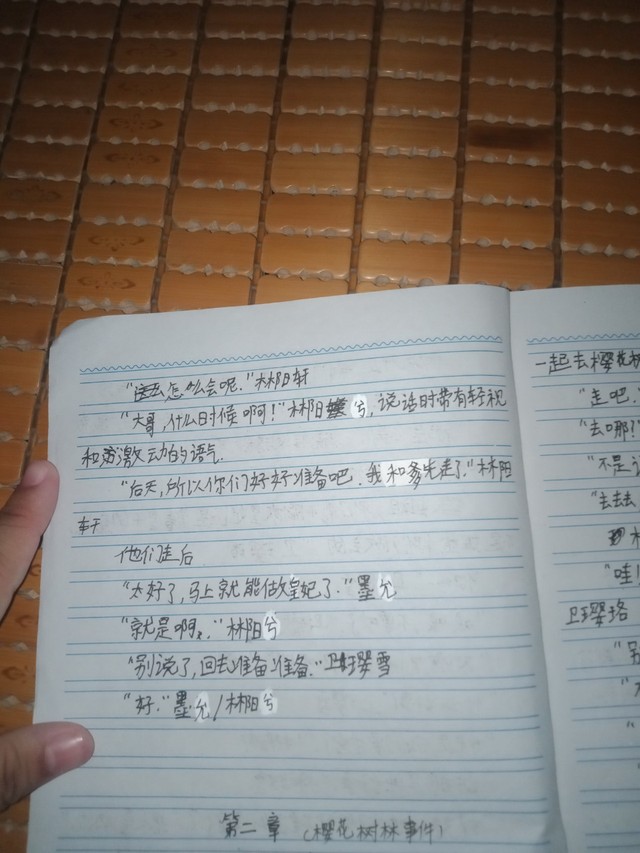 "怎么会呢."林阳轩
"大哥,什么时候啊!"林阳兮,说话时带有轻视
和激动的语气
"后天,所以你们好好准备吧.我和爹先走了."林阳
轩
他们走后
"太好了,马上就能做皇妃了."墨允
"就是啊."林阳兮
"别说了,回去准备准备."卫璎雪
"好."墨允/林阳兮
第二章 (樱花树林事件)
一起去樱花树
"走吧.
"去哪?
"不是说
"去去去
"哇!
卫璎珞
"别